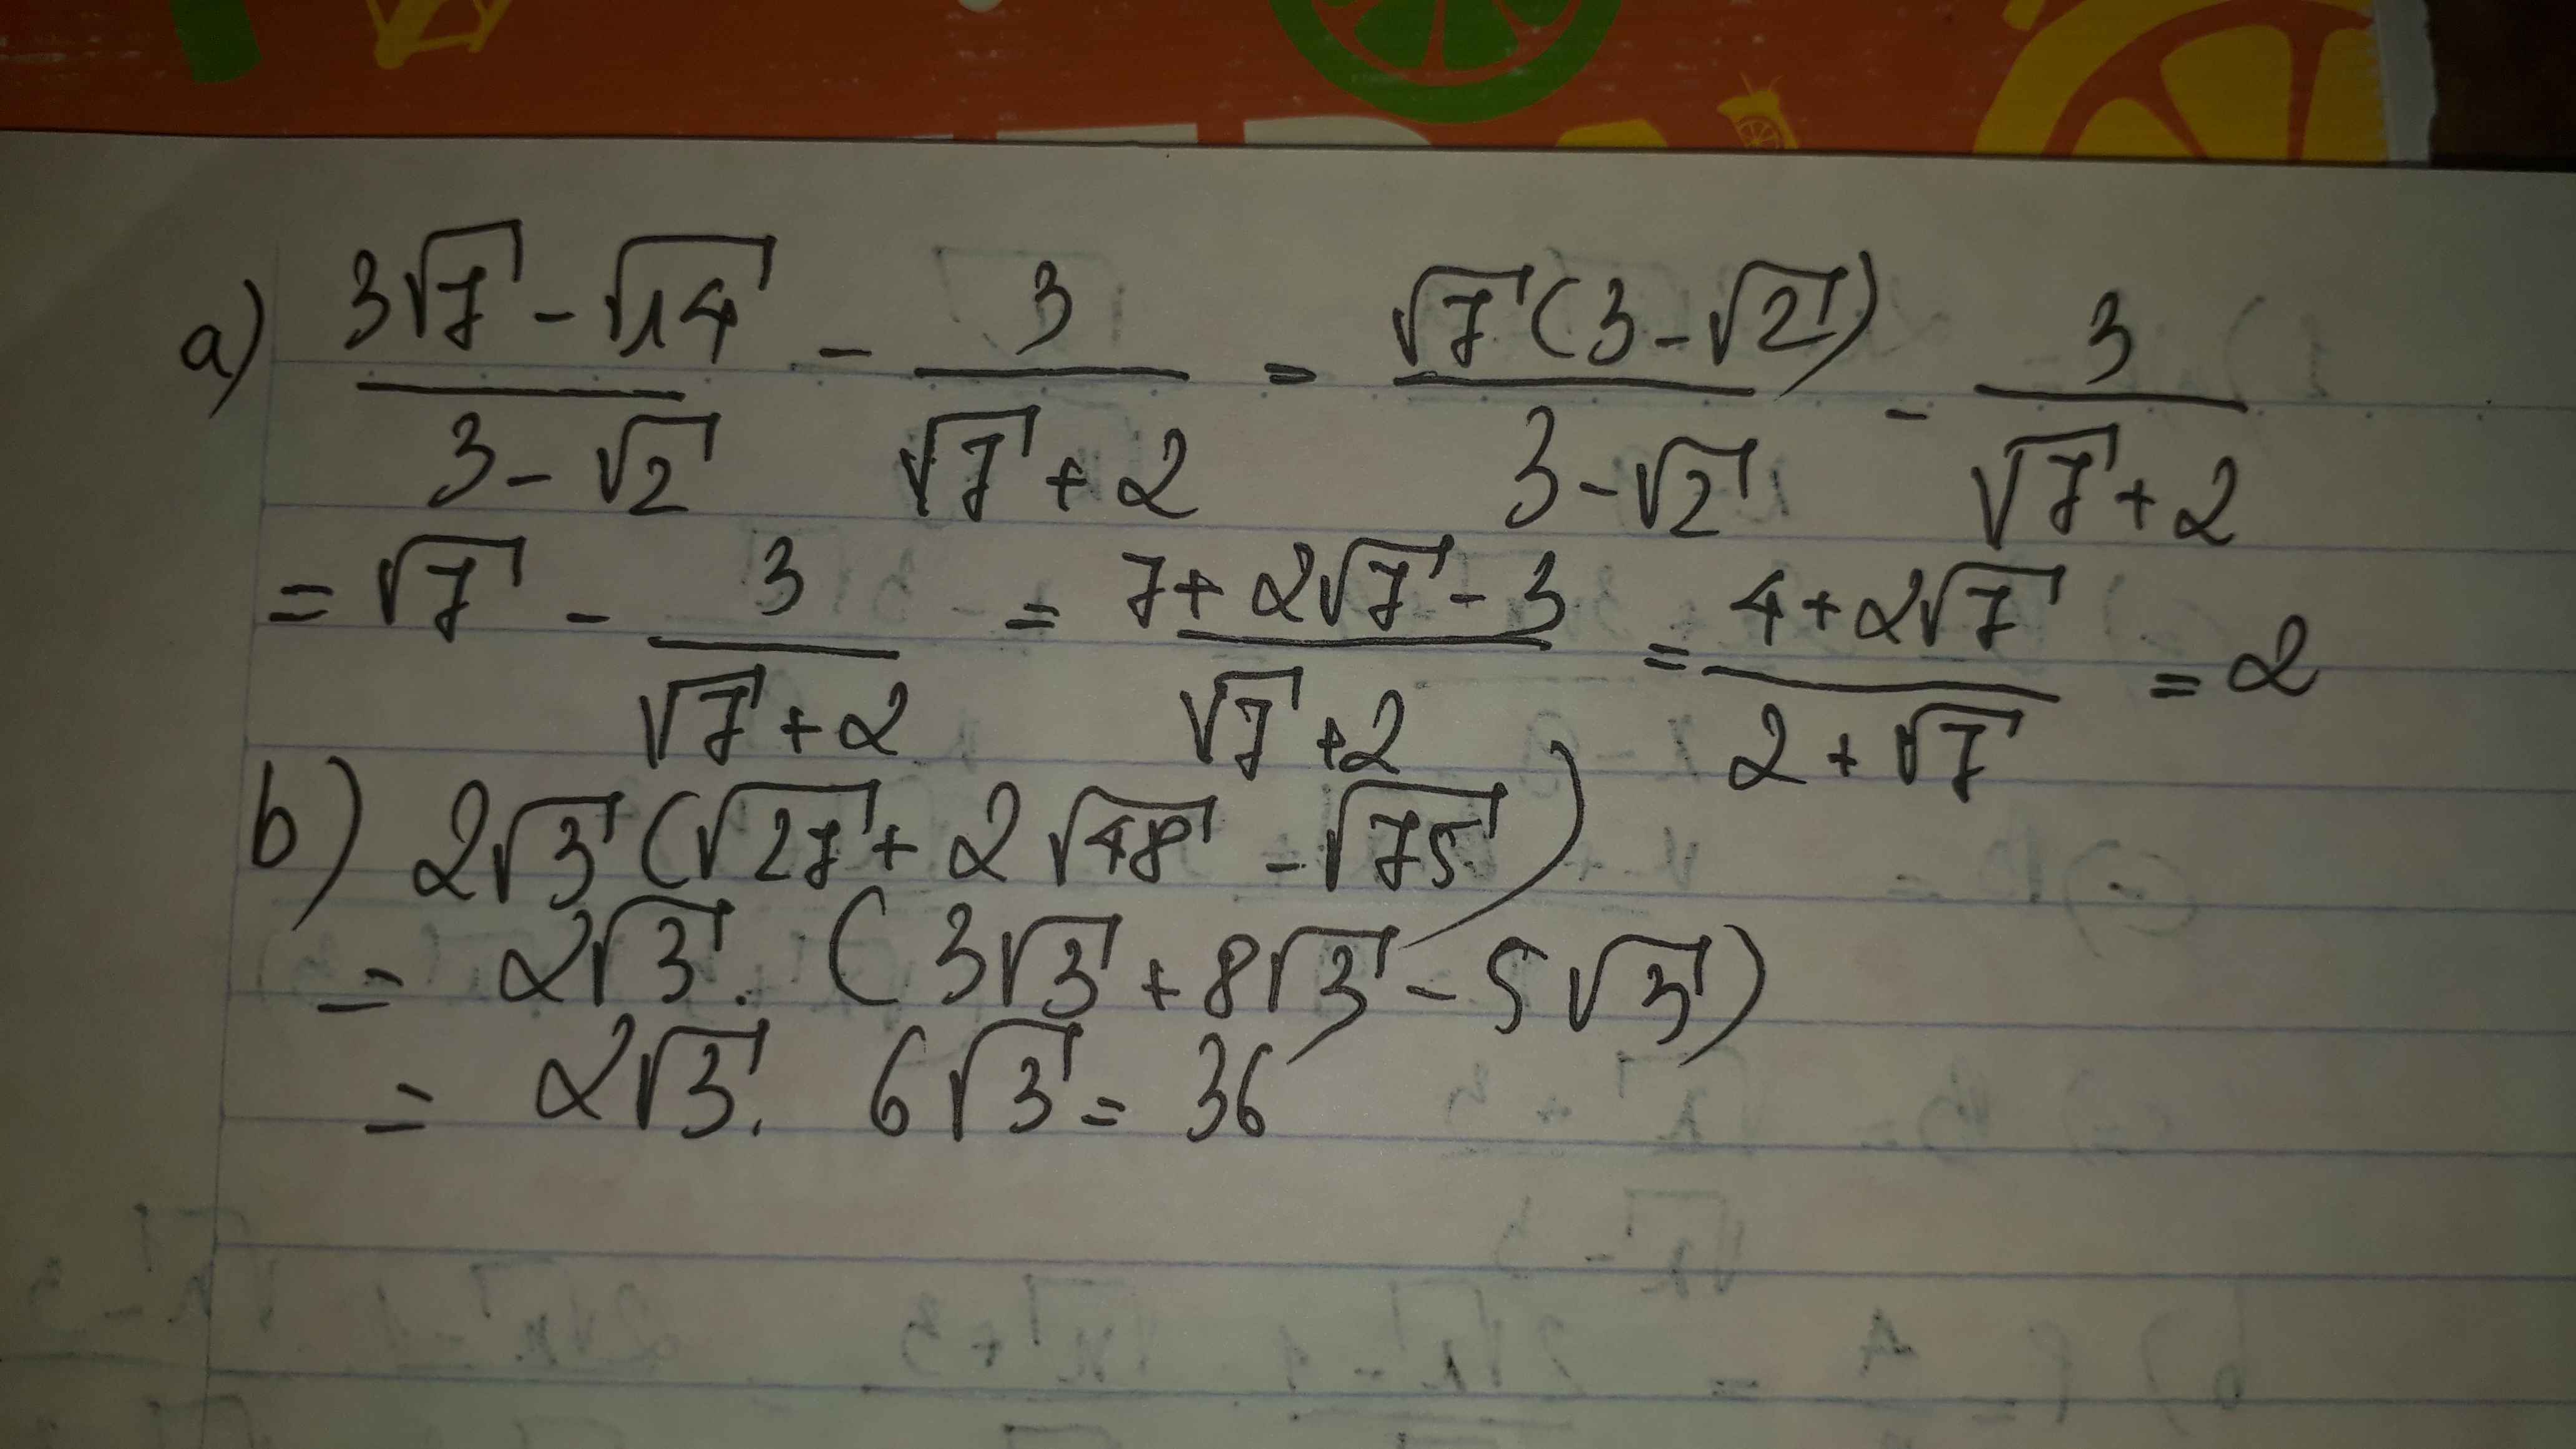 a) (3√7 - √14)/(3 - √2) - 3/(√7 + 2) = √7(3 - √2)/(3 - √2) - 3/(√7 + 2)
= √7 - 3/(√7 + 2) = (7 + 2√7 - 3)/(√7 + 2) = (4 + 2√7)/(2 + √7) = 2
b) 2√3(√27 + 2√48 - √75)
= 2√3 . (3√3 + 8√3 - 5√3)
= 2√3 . 6√3 = 36